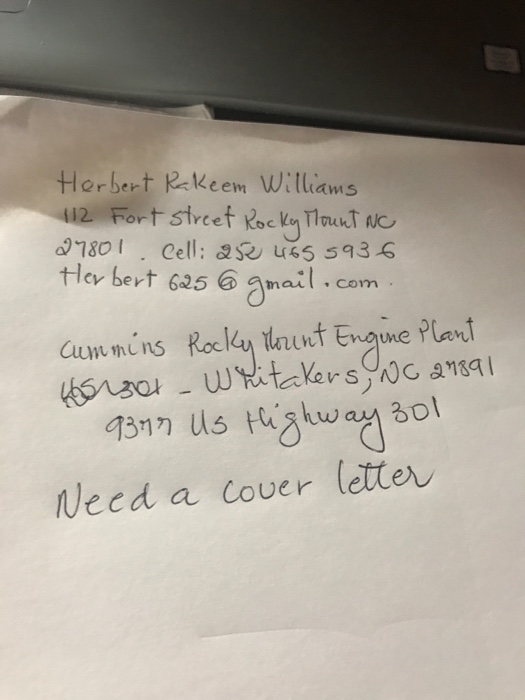 Herbert Rakeem Williams
112 Fort street Rocky Mount NC
27801. Cell: 252 465 5936
Herbert 625@gmail.com.
Cummins Rocky Mount Engine Plant
- Whitakers, NC 27891
9377 US Highway 301
Need a cover letter